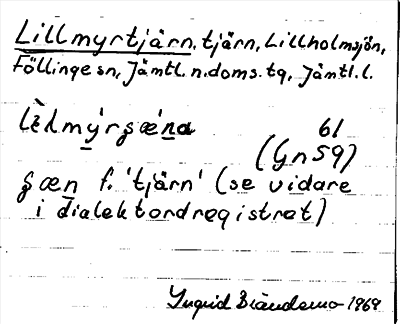 Lillmyrtjärn, tjärn, Lillholmsjön,
Föllinge sn, Jämtl. n. doms. tg, Jämtl. l.
lèlmy̱rʒæ̀na
61
(Gn 59)
ʒæn f. 'tjärn' (se vidare
i dialektordregistret)
Ingrid Brändemo 1969